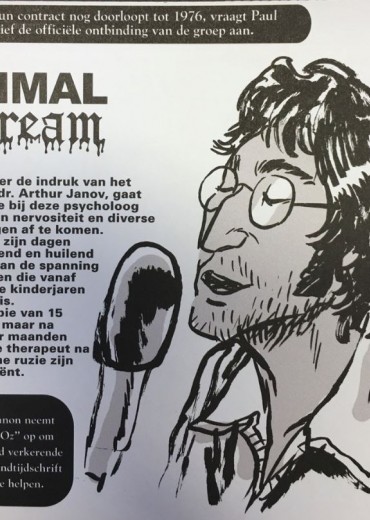 un contract nog doorloopt tot 1976, vraagt Paul
ief de officiële ontbinding van de groep aan.
IMAL
ream
er de indruk van het
dr. Arthur Janov, gaat
e bij deze psycholoog
n nervositeit en diverse
gen af te komen.
zijn dagen
end en huilend
an de spanning
en die vanaf
e kinderjaren
is.
pie van 15
maar na
r maanden
e therapeut na
ne ruzie zijn
ënt.
nnon neemt
Oz" op om
d verkerende
ndtijdschrift
e helpen.